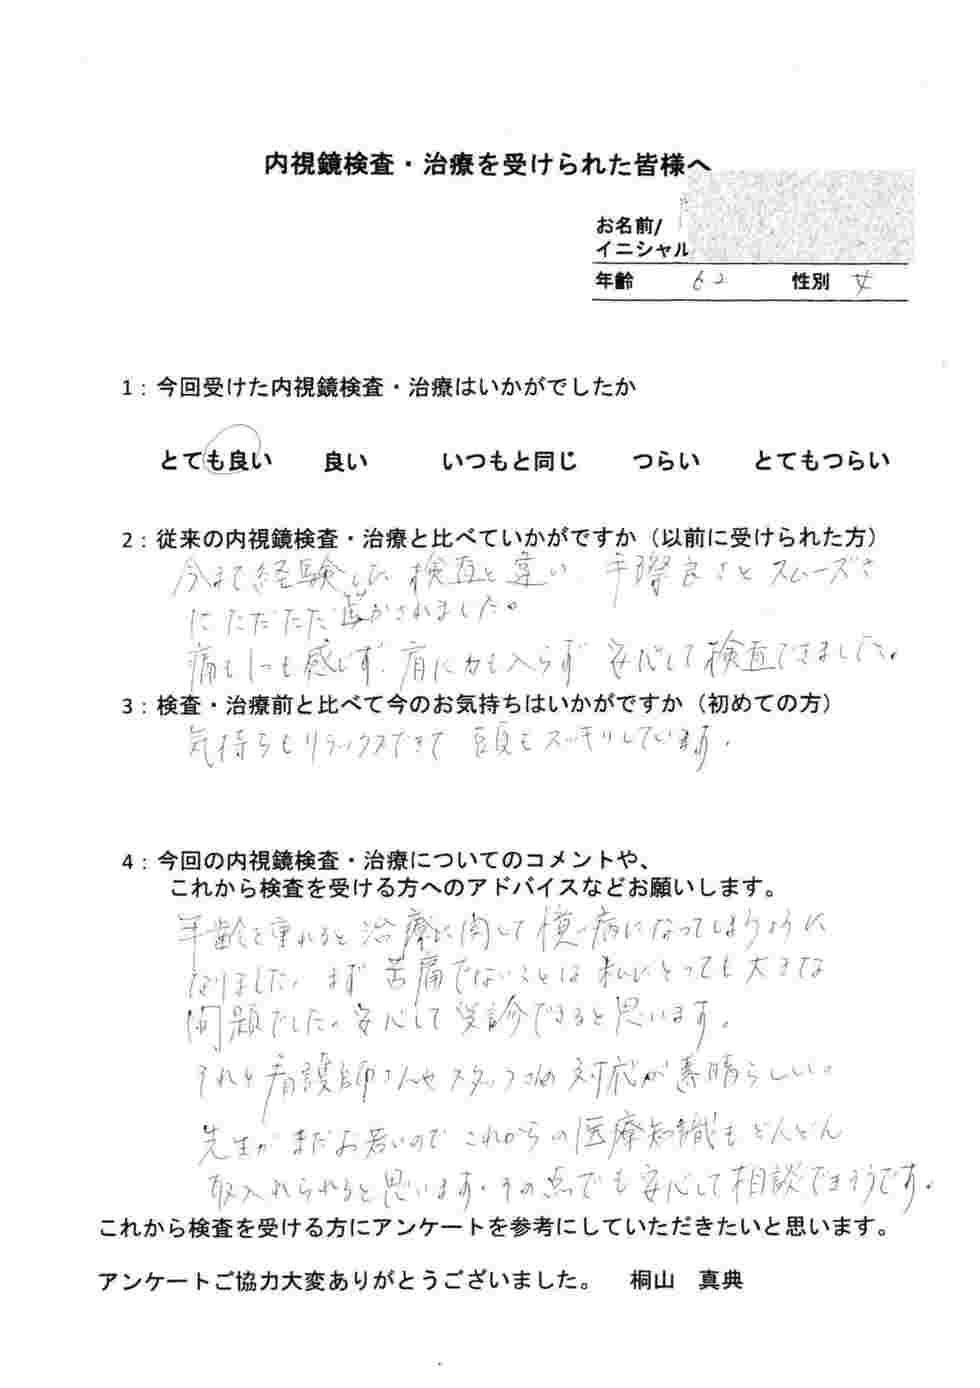 内視鏡検査・治療を受けられた皆様へ
お名前/
イニシャル
年齢 62 性別 女
1：今回受けた内視鏡検査・治療はいかがでしたか
とても良い 良い いつもと同じ つらい とてもつらい
2：従来の内視鏡検査・治療と比べていかがですか（以前に受けられた方）
今まで経験した検査と違い、手際良さとスムーズさ
にただただ驚かされました。
痛も1つも感じず、肩に力も入らず 安心して検査できました。
3：検査・治療前と比べて今のお気持ちはいかがですか（初めての方）
気持ちもリラックスできて 頭もスッキリしています。
4：今回の内視鏡検査・治療についてのコメントや、
これから検査を受ける方へのアドバイスなどお願いします。
年齢を重れると治療に関して憶病になってしまうように
なりました。まず苦痛でないことは私にとっても大きな
問題でした。安心して受診できると思います。
それと看護師さんやスタッフさの対応が素晴らしい。
先生がまだお若いのでこれからの医療知識もどんどん
取入れられると思います。その点でも安心して相談できそうです。
これから検査を受ける方にアンケートを参考にしていただきたいと思います。
アンケートご協力大変ありがとうございました。 桐山 真典